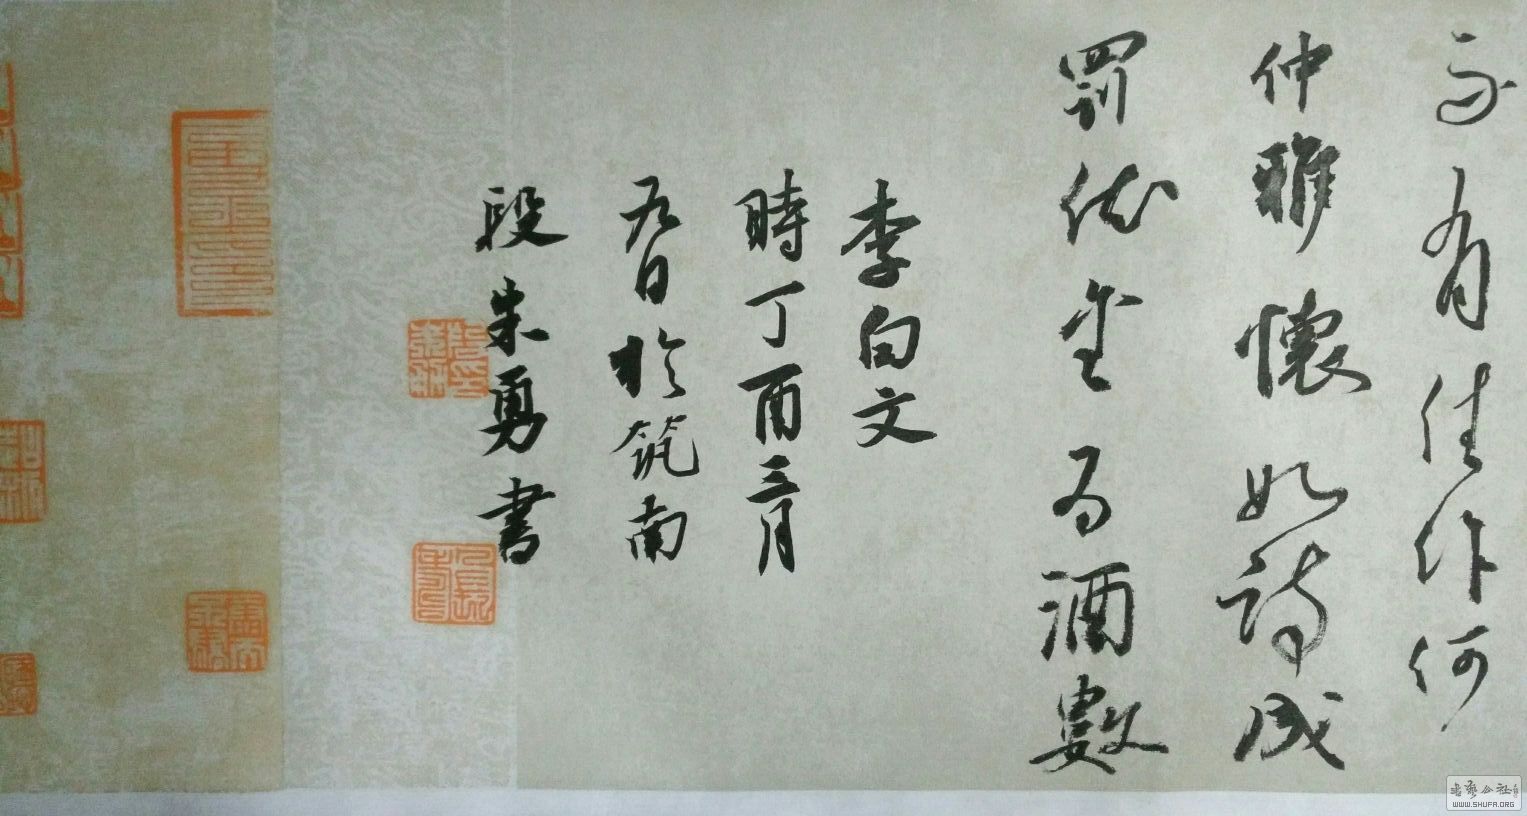 不有佳作何
仲雅懷如詩成
罰依金谷酒數
李白文
時丁酉三月
九日於筑南
段朱勇書
WWW.SHUFA.ORG